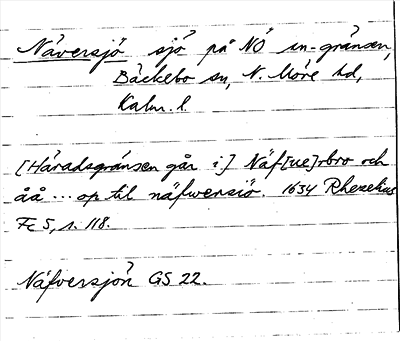 Näversjö sjö på NÖ sn-gränsen,
Bäckebo sn, N. Möre hd,
Kalm. l.
[Häradsgränsen går i:] Näf[ue]rbro och
åå ... op til näfwersiö. 1634 Rhezelius
Fc 5, s. 118.
Näfversjön GS 22.